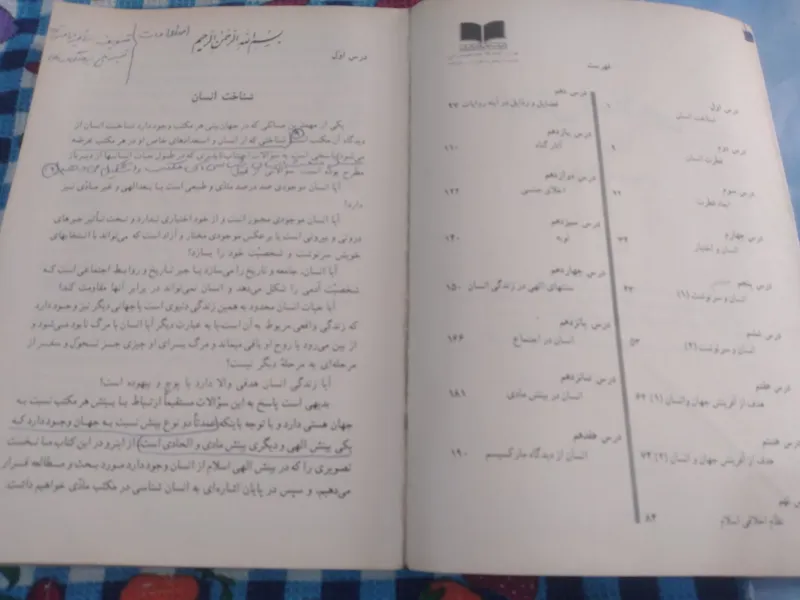 فهرست
درس اول
شناخت انسان ۱
درس دوم
فطرت انسان ۹
درس سوم
ابعاد فطرت
درس چهارم
انسان و اختیار
درس پنجم
انسان و سرنوشت (۱) ۴۳
درس ششم
انسان و سرنوشت (۲) ۵۳
درس هفتم
هدف از آفرینش جهان وانسان (۱) ۶۴
درس هشتم
هدف از آفرینش جهان و انسان (۲) ۷۴
نهم
نظام اخلاقی اسلام ۸۴
درس دهم
فضایل و رذایل در آینه روایات ۹۷
درس یازدهم
آثار گناه ۱۱۰
درس دوازدهم
اخلاق جنسی ۱۲۲
درس سیزدهم
توبه ۱۴۰
درس چهاردهم
سنتهای الهی در زندگی انسان ۱۵۰
درس پانزدهم
انسان در اجتماع ۱۶۶
درس شانزدهم
انسان در بینش مادی ۱۸۱
درس هفدهم
انسان از دیدگاه مارکسیسم ۱۹۰
بسم الله الرحمن الرحیم
درس اول
شناخت انسان
یکی از مهمترین مسائلی که در جهان بینی هر مکتب وجود دارد شناخت انسان از
دیدگاه آن مکتب است شناختی که از انسان و استعدادهای خاص او در هر مکتب عرضه
می‌شود پاسخی است به سؤالات اجتناب‌ناپذیری که در طول حیات انسانها از دیرباز
مطرح بوده است. سؤالاتی از قبیل
آیا انسان موجودی صد درصد مادی و طبیعی است یا بعدالهی و غیر مادّی نیز
دارد؟
آیا انسان موجودی مجبور است و از خود اختیاری ندارد و تحت تأثیر جبرهای
درونی و بیرونی است یا بر عکس موجودی مختار و آزاد است که می‌تواند با انتخابهای
خویش سرنوشت و شخصیّت خود را بسازد؟
آیا انسان، جامعه و تاریخ را می‌سازد یا جبر تاریخ و روابط اجتماعی است که
شخصیّت آدمی را شکل می‌دهد و انسان نمی‌تواند در برابر آنها مقاومت کند؟
آیا حیات انسان محدود به همین زندگی دنیوی است یا جهانی دیگر نیز وجود دارد
که زندگی واقعی مربوط به آن است یا به عبارت دیگر آیا انسان با مرگ نابود می‌شود و
از بین می‌رود یا روح او باقی میماند و مرگ برای او چیزی جز تحول و سفر از
مرحله‌ای به مرحلهٔ دیگر نیست؟
آیا زندگی انسان هدفی والا دارد یا پوچ و بیهوده است؟
بدیهی است پاسخ به این سؤالات مستقیماً ارتباط با بینش هر مکتب نسبت به
جهان هستی دارد و با توجه باینکه عمدتاً دو نوع بینش نسبت به جهان وجود دارد که
یکی بینش الهی و دیگری بینش مادی و الحادی است از اینرو در این کتاب ما نخست
تصویری را که در بینش الهی اسلام از انسان وجود دارد مورد بحث و مطالعه قرار
می‌دهیم، و سپس در پایان اشاره‌ای به انسان شناسی در مکتب مادّی خواهیم داشت.